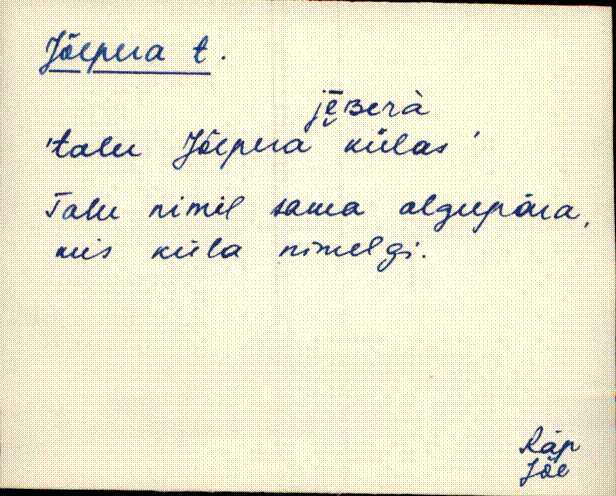 Jõepera t.
jē̬Berà
'talu Jõepera külas'
Talu nimil sama algupära,
mis küla nimelgi.
Räp
Jõe